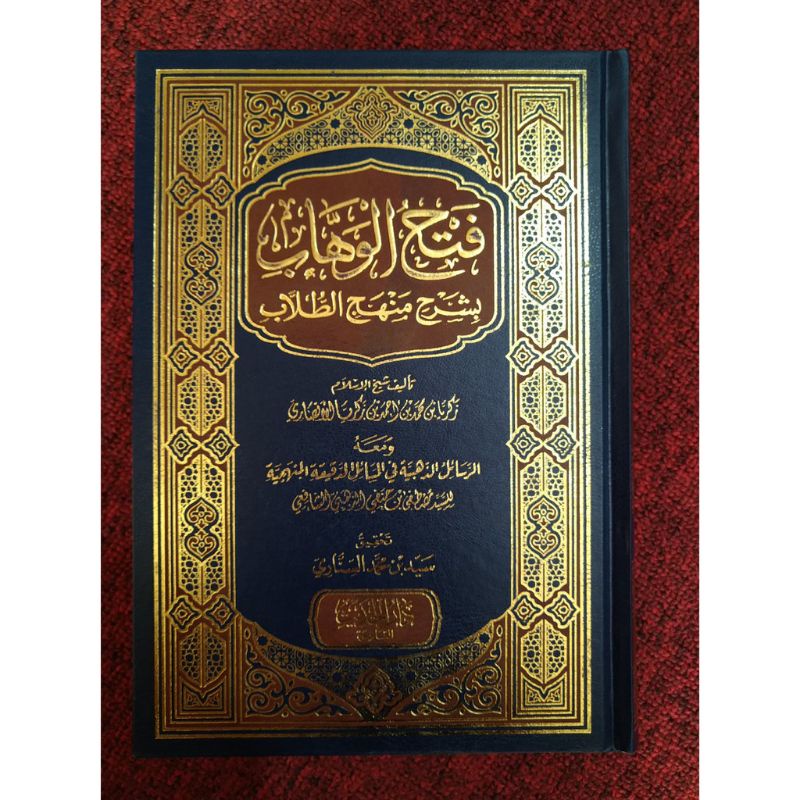 فَتْحُ الوَهَّابِ
بِشَرْحِ مَنْهَجِ الطُّلَّابِ
تأليف شيخ الإسلام
زكريا بن محمد بن أحمد بن زكريا الأنصاري
وَمَعَهُ
الرسائل الذهبية في المسائل الدقيقة المنهجية
للسيد مصطفى بن حنفي الذهبي الشافعي
تحقيق
سيد بن محمد السنّاري
دار الحديث
القاهرة